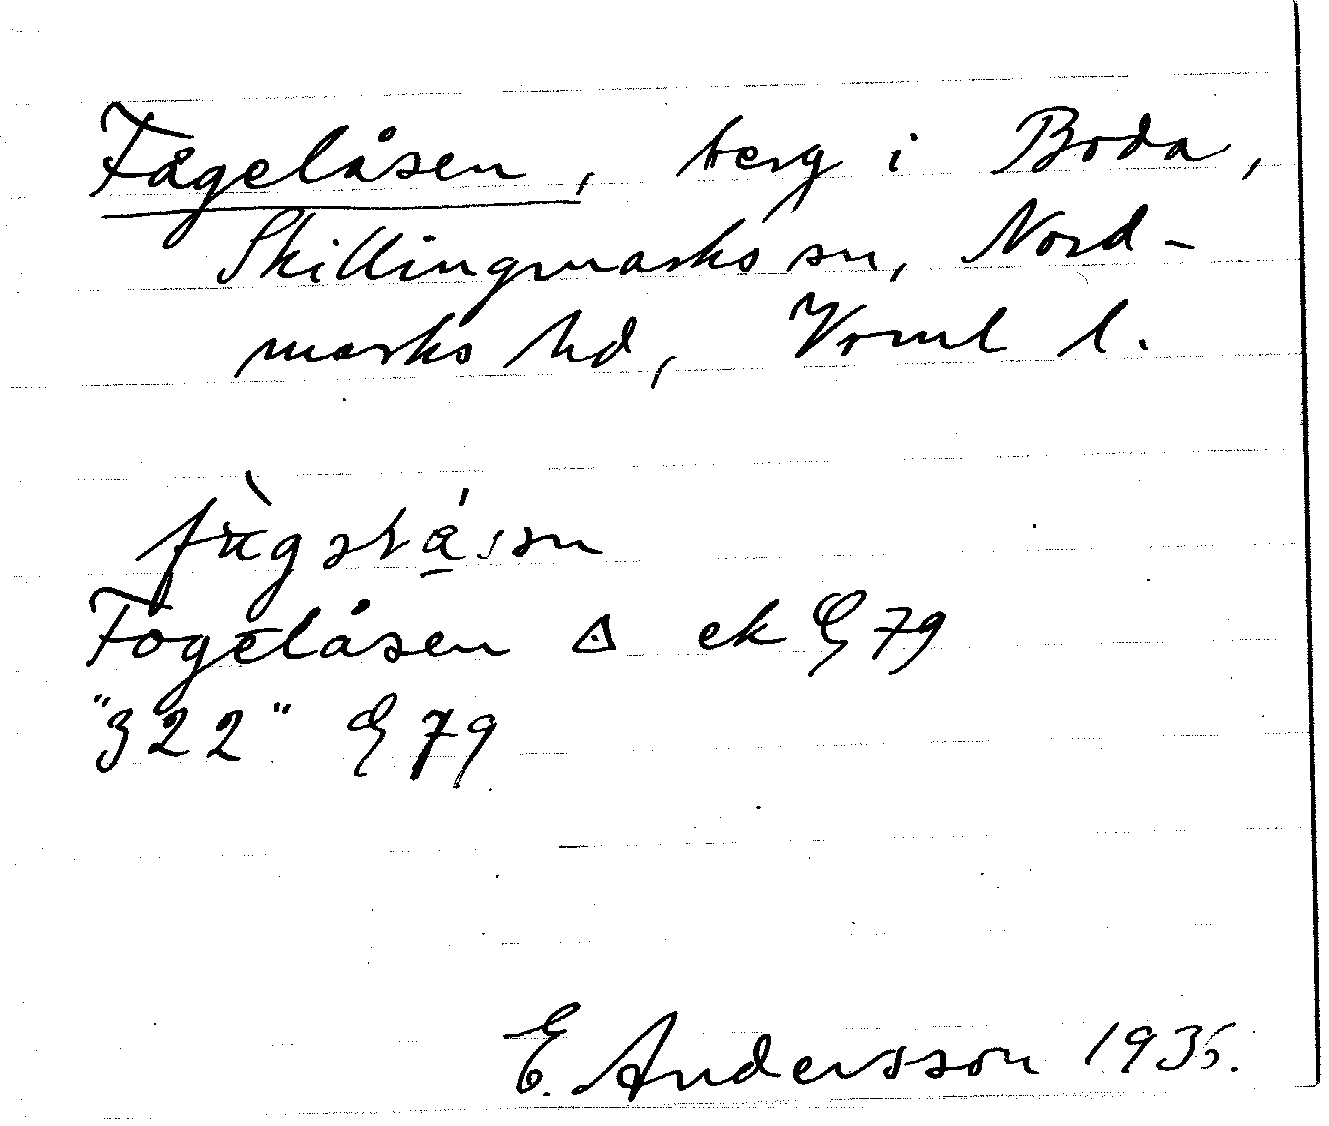 Fågelåsen, berg i Boda,
Skillingmarks sn, Nord-
marks hd, Vrml l.
Fogelåsen ek 79
"322" 79
E. Andersson 1936.